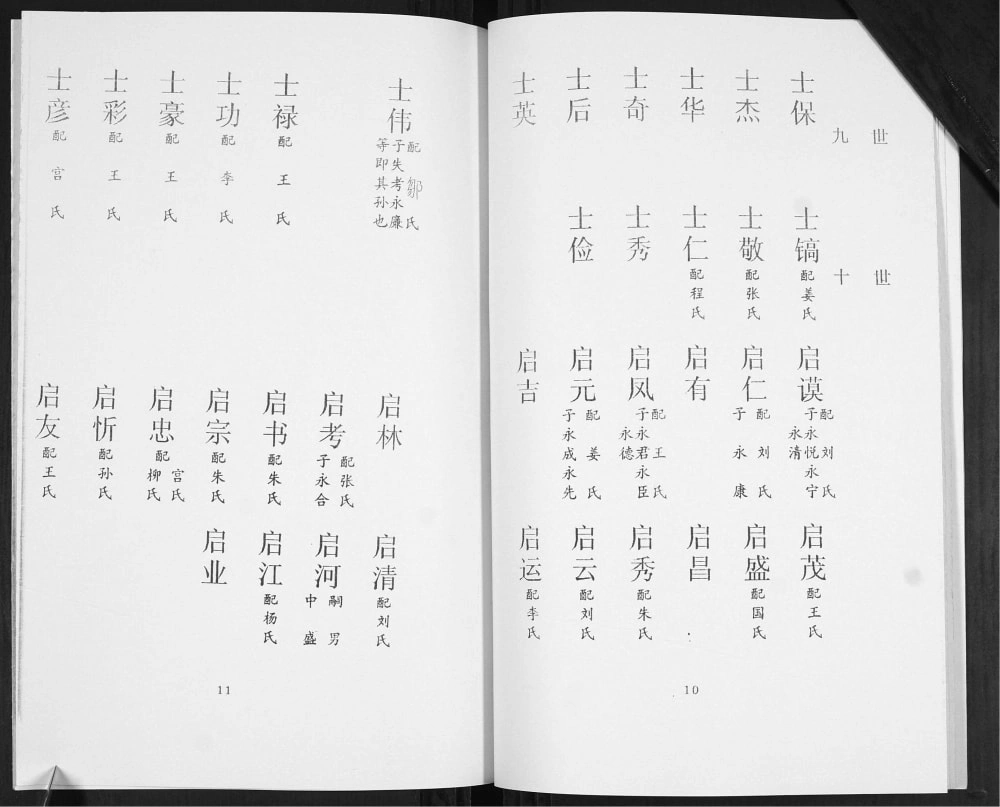 九世
士保
士杰
士华
士奇
士后
士英
十世
士镐
配姜氏
士敬
配张氏
士仁
配程氏
士秀
士俭
启谟
配刘氏
子永悦永宁
永清
启仁
配刘氏
子永康
启有
启凤
配王氏
子永君永臣
永德
启元
配姜氏
子永成永先
启吉
启茂
配王氏
启盛
配国氏
启昌
启秀
配朱氏
启云
配刘氏
启运
配李氏
10
士伟
配邹氏
子失考永廉
等即其孙也
士禄
配王氏
士功
配李氏
士豪
配王氏
士彩
配王氏
士彦
配宫氏
启林
启考
配张氏
子永合
启书
配朱氏
启宗
配朱氏
启忠
配宫氏
柳氏
启忻
配孙氏
启友
配王氏
启清
配刘氏
启河
嗣男
中盛
启江
配杨氏
启业
11